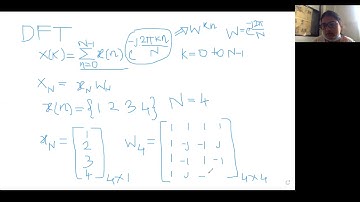 DFT
X(K) = N-1 Σ n=0 x(n) e -j2πkn/N ⇒ W^kn W = e -j2π/N
K = 0 to N-1
X_N = x_N W_N
x(n) = {1 2 3 4} N = 4
x_N = [1 2 3 4] 4×1 W_4 = [1 1 1 1
1 -j -1 j
1 -1 1 -1
1 j -] 4×4